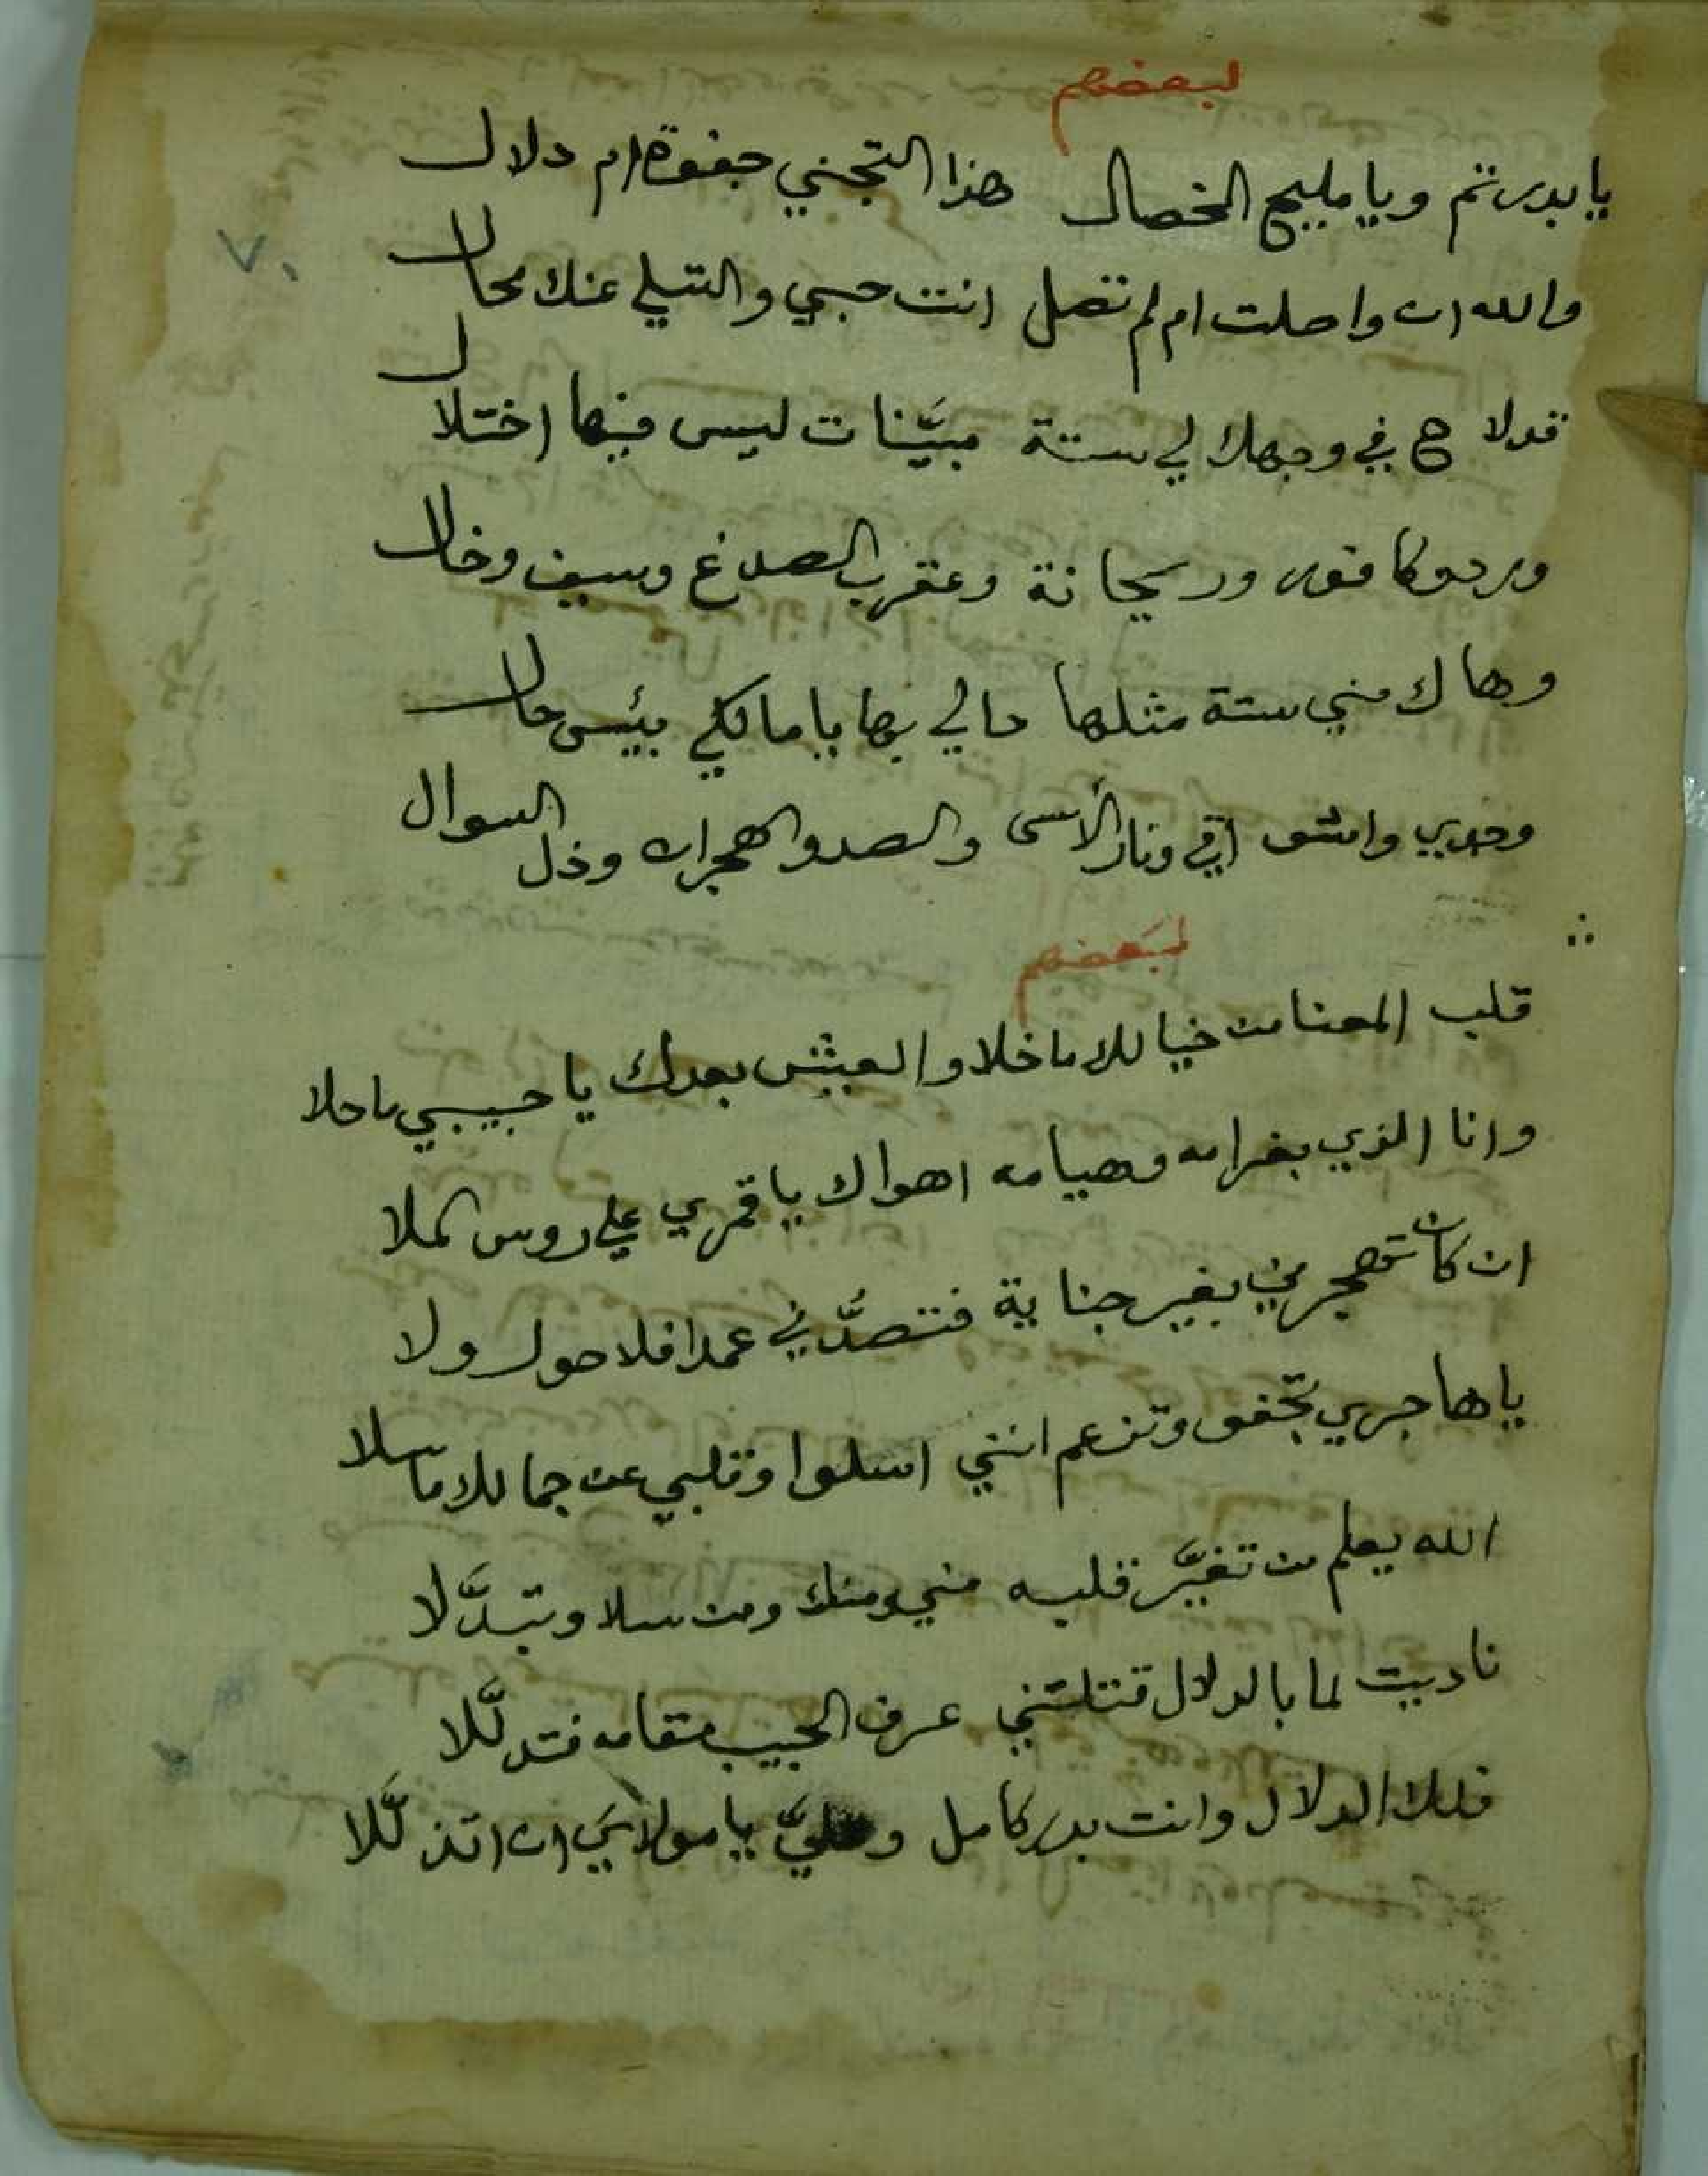 لبعضهم
يا بدر تم ويا مليح الخصال هذا التجني جفوة ام دلال
٧٠
والله ان واصلت ام لم تصل انت حبيبي والتسلي عنك محال
قد لاح في وجهك لي ستة مبيَّنات ليس فيها اختلال
ورد وكافور وريحانة وعقرب الصدغ وسيف وخال
وهاك مني ستة مثلها حالي بها يا مالكي بئس حال
وجدي واشواقي ونار الأسى والصد والهجران وذل السوال
لبَعضهم
قلب المعنا من خيالك ما خلا والعيش بعدك يا حبيبي ما حلا
وانا الذي بغرامه وهيامه اهواك يا قمري علي روس الملا
ان كان تهجرني بغير جناية فتصدُّني عمدا فلا حول ولا
يا هاجري تجفو وتزعم انني اسلوا وقلبي عن جمالك ما سلا
الله يعلم من تغيَّر قلبه مني ومنك ومن سلا وتبدَّلا
ناديت لما بالدلال قتلتني عرف الحبيب مقامه فتدلَّلا
فلك الدلال وانت بدر كامل وعليَّ يا مولاي ان اتذلَّلا